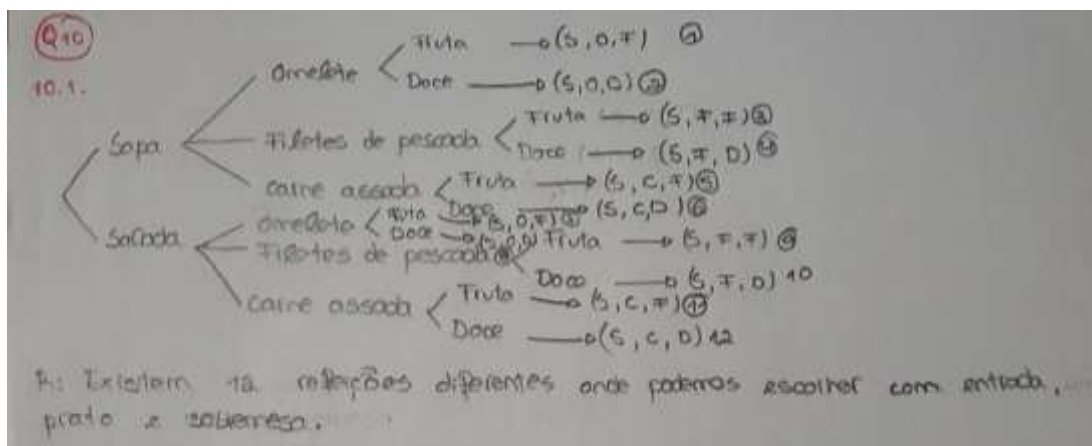 Q10
10.1.
Sopa
Omelete
Fruta (S,O,F) 1
Doce (S,O,D) 2
Filetes de pescada
Fruta (S,F,F) 3
Doce (S,F,D) 4
carne assada
Fruta (S,C,F) 5
Doce (S,C,D) 6
Salada
omelete
Fruta (S,O,F) 7
Doce (S,O,D)
Filetes de pescada
Fruta (S,F,F) 9
Doce (S,F,D) 10
carne assada
Fruta (S,C,F) 11
Doce (S,C,D) 12
R: Existem 12 refeições diferentes onde podemos escolher com entrada,
prato e sobremesa.